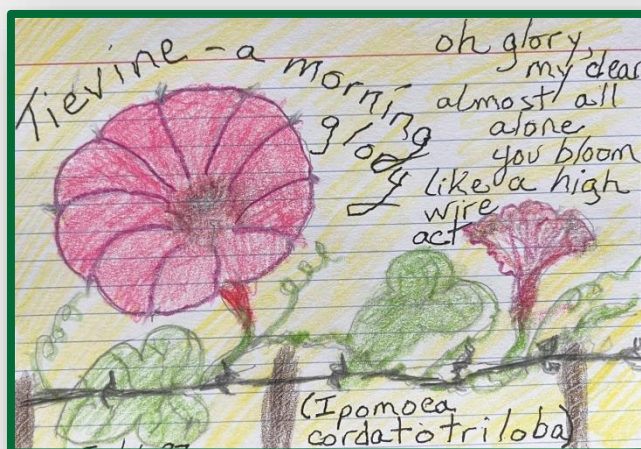 Tievine - a morning
glory
oh glory,
my dear
almost all
alone
you bloom
like a high
wire
act
(Ipomoea
cordatotriloba)